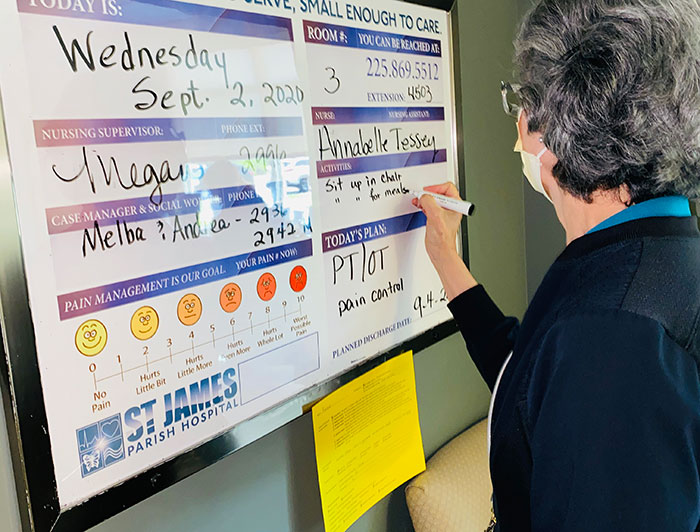 TODAY IS:
SERVE, SMALL ENOUGH TO CARE.
Wednesday
Sept. 2, 2020
ROOM #: YOU CAN BE REACHED AT:
3 225.869.5512
EXTENSION: 4503
NURSING SUPERVISOR: PHONE EXT:
Megan
NURSE: NURSING ASSISTANT:
Annabelle Tessey
ACTIVITIES:
Sit up in chair
" " for meals
CASE MANAGER & SOCIAL PHONE EXT:
Melba & Andrea - 2936
2942
TODAY'S PLAN:
PT/OT
pain control
PLANNED DISCHARGE DATE: 9.4.2
PAIN MANAGEMENT IS OUR GOAL YOUR PAIN # NOW:
0 1 2 3 4 5 6 7 8 9 10
No Pain
Hurts Little Bit
Hurts Little More
Hurts Even More
Hurts Whole Lot
Worst Possible Pain
ST JAMES
PARISH HOSPITAL